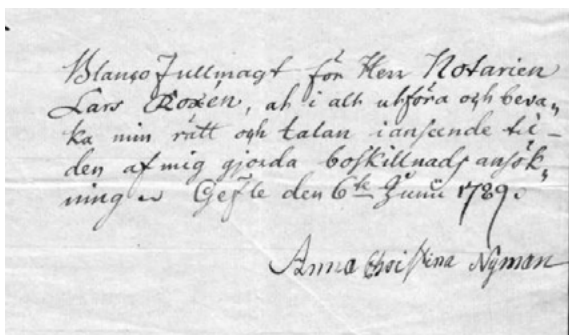 Blanco Fullmagt för Herr Notarien
Lars Roxén, at i alt utföra och beva„
ka min rätt och talan i anseende til
den af mig gjorda boskillnads ansök„
ning. Gefle den 6te Junii 1789.
Anna Christina Nyman